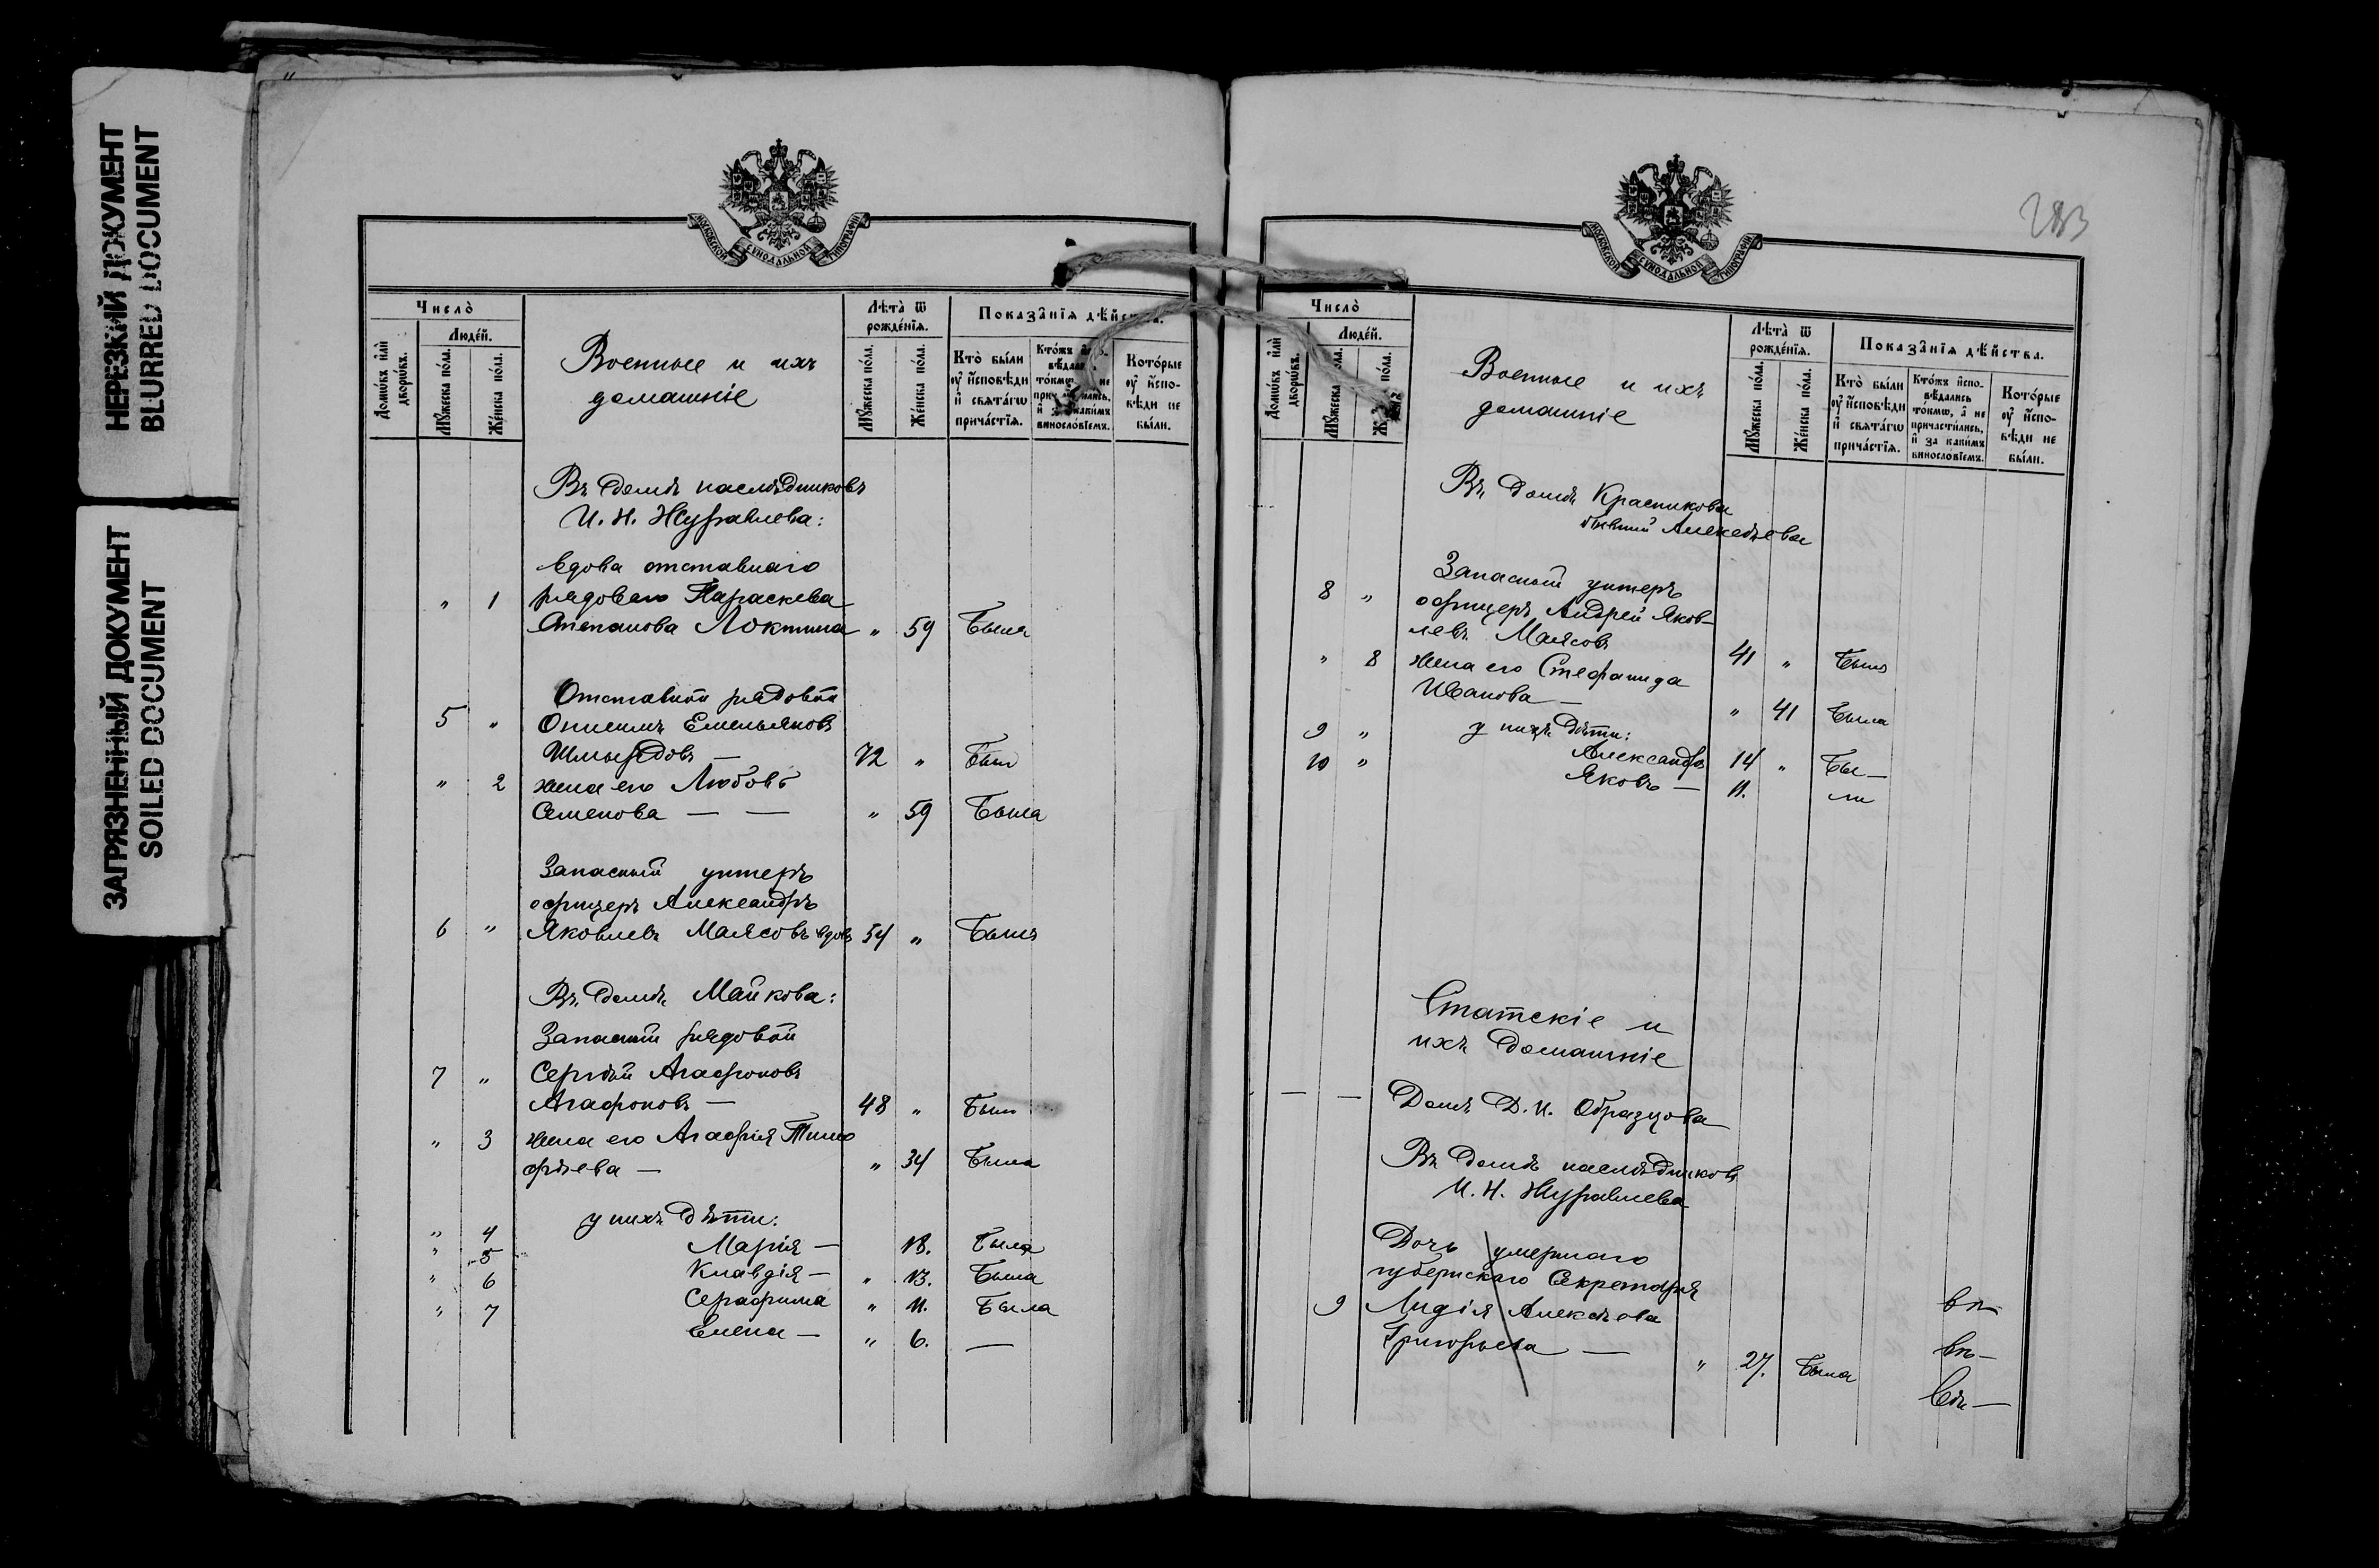 НЕРЕЗКИЙ ДОКУМЕНТ
BLURRED DOCUMENT
ЗАГРЯЗНЕННЫЙ ДОКУМЕНТ
SOILED DOCUMENT
МОСКОВСКОЙ СѴНОДАЛЬНОЙ ТИПОГРАФІИ
Число̀
Домѡ́въ и҆лѝ дворѡ́въ.
Люде́й.
Мꙋ́жеска по́ла.
Же́нска по́ла.
Военные и ихъ
домашніе
Лѣта̀ ѿ рожде́нїѧ.
Мꙋ́жеска по́ла.
Же́нска по́ла.
Показа̑нїѧ дѣ́йства.
Кто̀ бы́ли оу҆ и҆сповѣ́ди и҆ свѧта́гѡ прича́стїѧ.
Кото́рые оу҆ и҆сповѣ́ди не бы́ли.
Въ домѣ наслѣдниковъ
И. Н. Журавлева:
вдова отставнаго
" 1 рядового Параскева
Степанова Локтина " 59 Была
Отставной рядовой
5 " Онисимъ Емельяновъ
72 " Былъ
" 2 жена его Любовь
Семенова — — " 59 Была
Запасный унтеръ
офицеръ Александръ
6 " Яковлевъ Малясовъ вдовъ 54 " Былъ
Въ домѣ Майкова:
Запасный рядовой
7 " Сергѣй Агафоновъ
Агафоновъ — 48 " Былъ
" 3 жена его Агафія Тимо
фѣева — " 34 Была
у нихъ дѣти:
" 4 Марія — Была
" 5 Клавдія — " 13. Была
" 6 Серафима " 11. Была
" 7 Елена — " 6. —
283
МОСКОВСКОЙ СѴНОДАЛЬНОЙ ТИПОГРАФІИ
Число̀
Домѡ́въ и҆лѝ дворѡ́въ.
Люде́й.
Мꙋ́жеска по́ла.
по́ла.
Военные и ихъ
домашніе
Лѣта̀ ѿ рожде́нїѧ.
Мꙋ́жеска по́ла.
Же́нска по́ла.
Показа̑нїѧ дѣ́йства.
Кто̀ бы́ли оу҆ и҆сповѣ́ди и҆ свѧта́гѡ прича́стїѧ.
Кто́жъ и҆сповѣ́дались то́кмѡ, а҆ не причасти́лись, и҆ за каки́мъ виносло́вїемъ.
Кото́рые оу҆ и҆сповѣ́ди не бы́ли.
Въ домѣ Красникова
бывшій Алексѣева
Запасный унтеръ
8 " офицеръ Андрей Яков-
левъ Малясовъ 41 " Былъ
" 8 жена его Стефанида
Иванова — " 41 Была
у нихъ дѣти:
9 " Александръ 14 " Бы —
10 " Яковъ — 11. ли
Статскіе и
ихъ домашніе
— — Домъ Д. И. Образцова
Въ домѣ наслѣдниковъ
И. Н. Журавлева
Дочь умершаго
губернскаго Секретаря
9 Лидія Алексѣева
Григорьева — " 27. Была